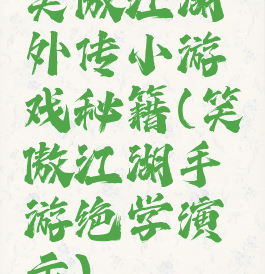 笑傲江湖
外传小游
戏秘籍(笑
傲江湖手
游绝学演
示)